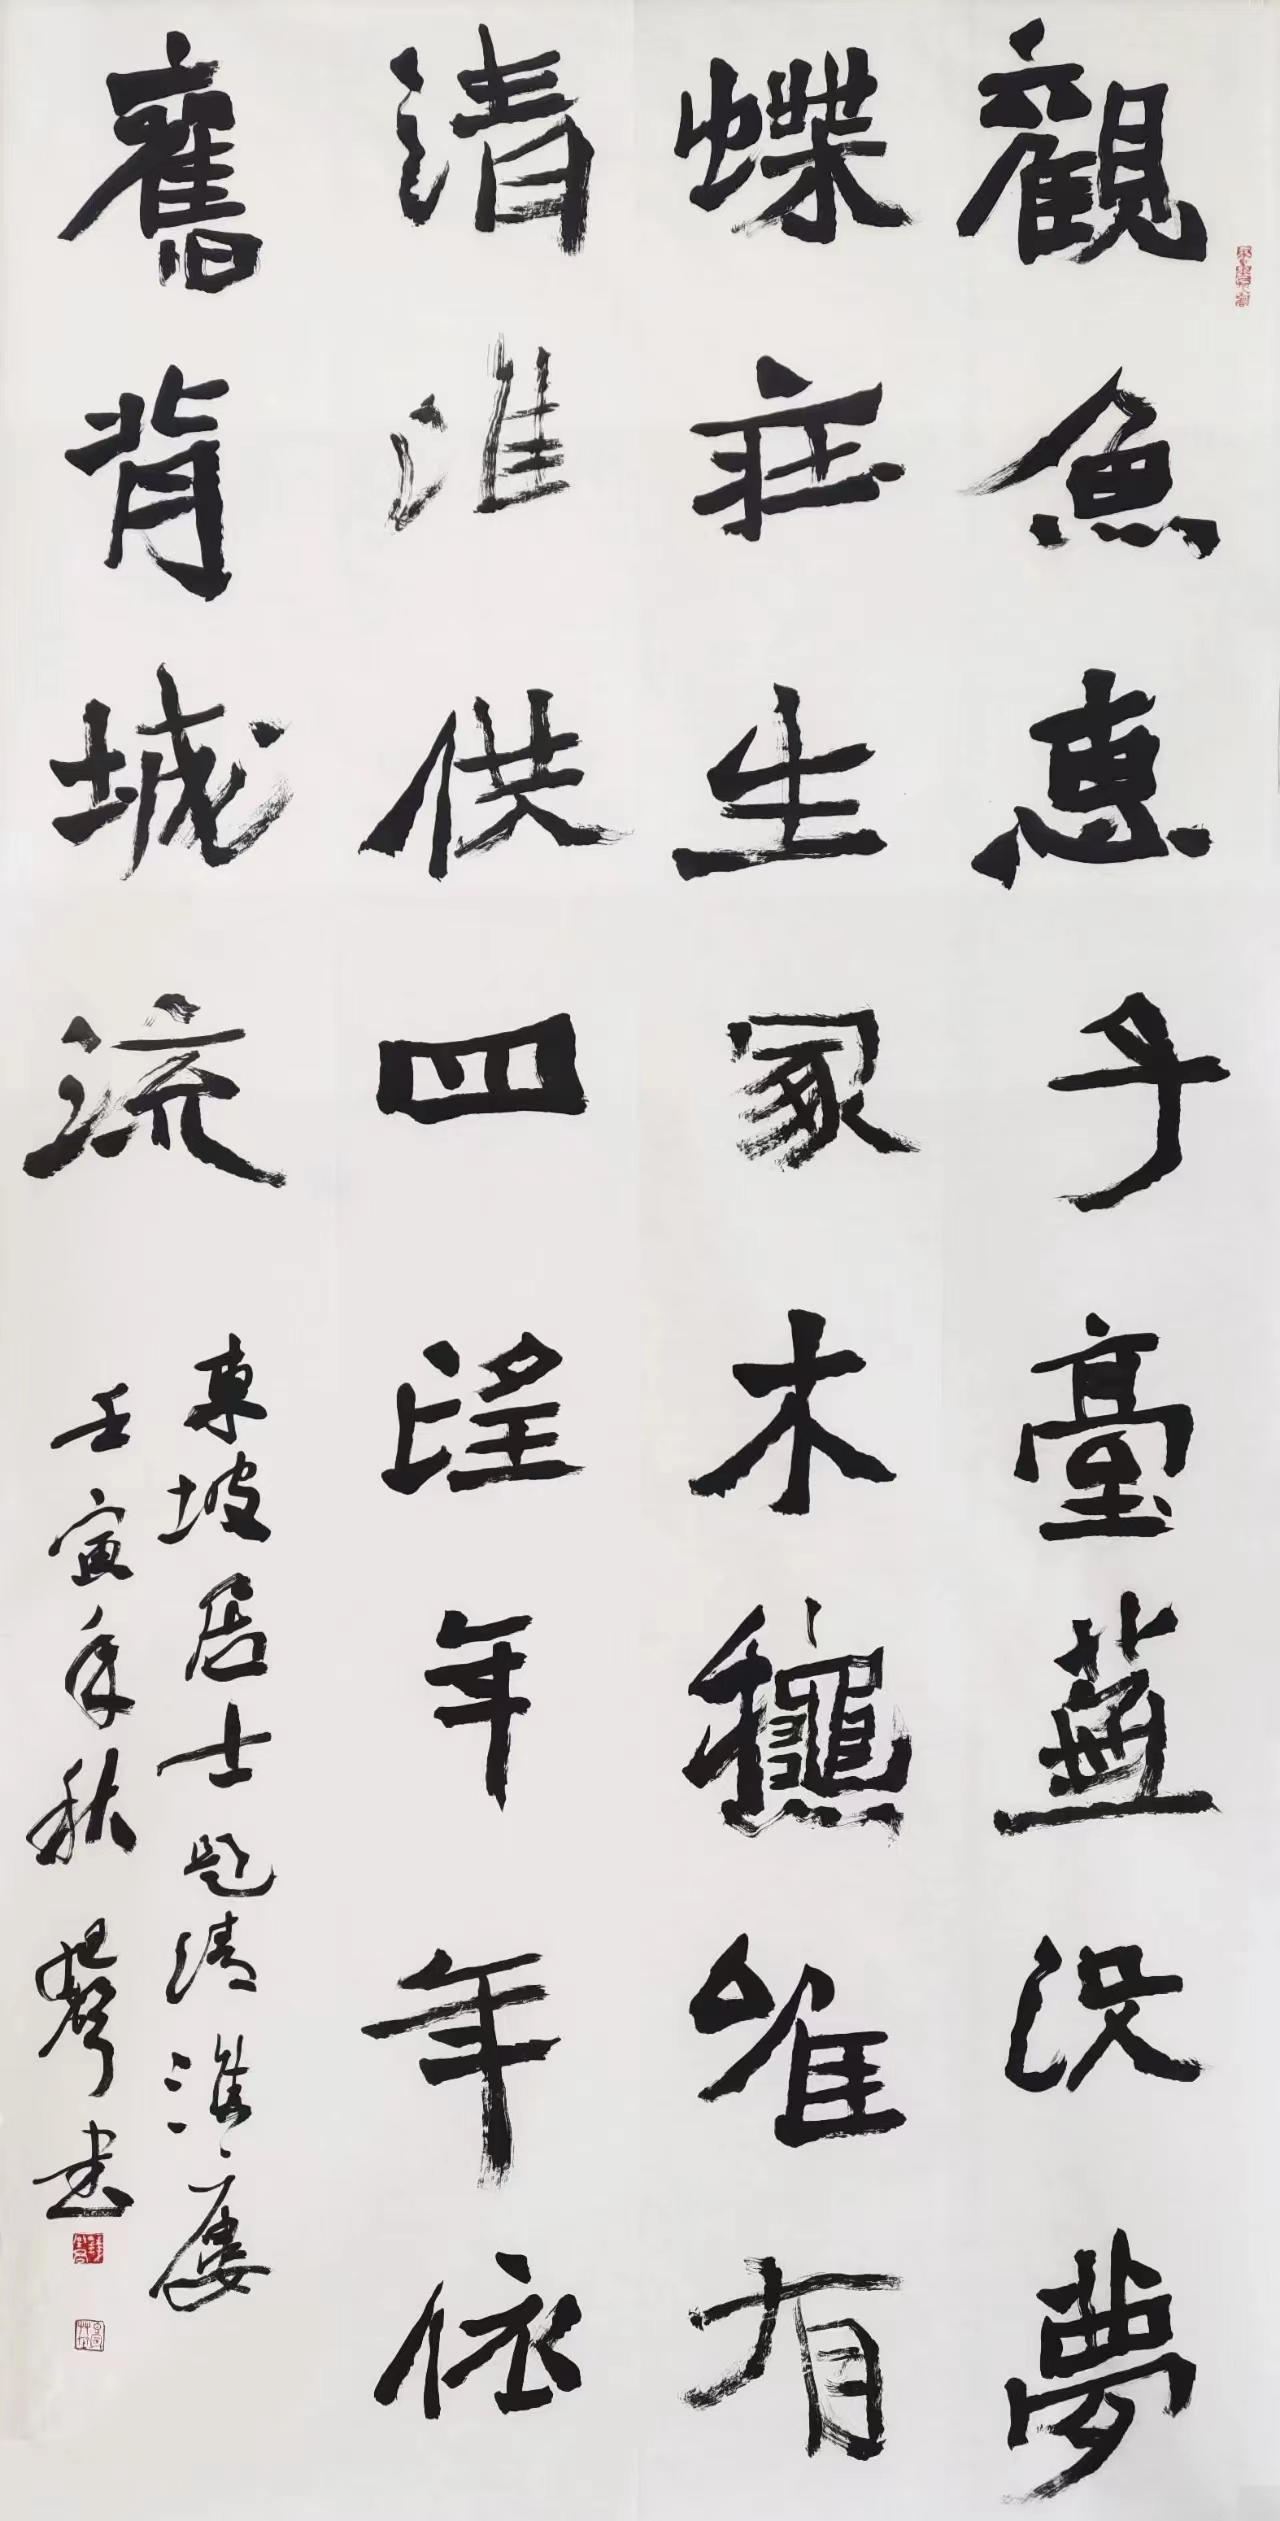 觀魚惠子臺蕪沒夢
蝶莊生冢木龝唯有
清淮供四望年年依
舊背城流
東坡居士題清淮樓
壬寅年秋聲書